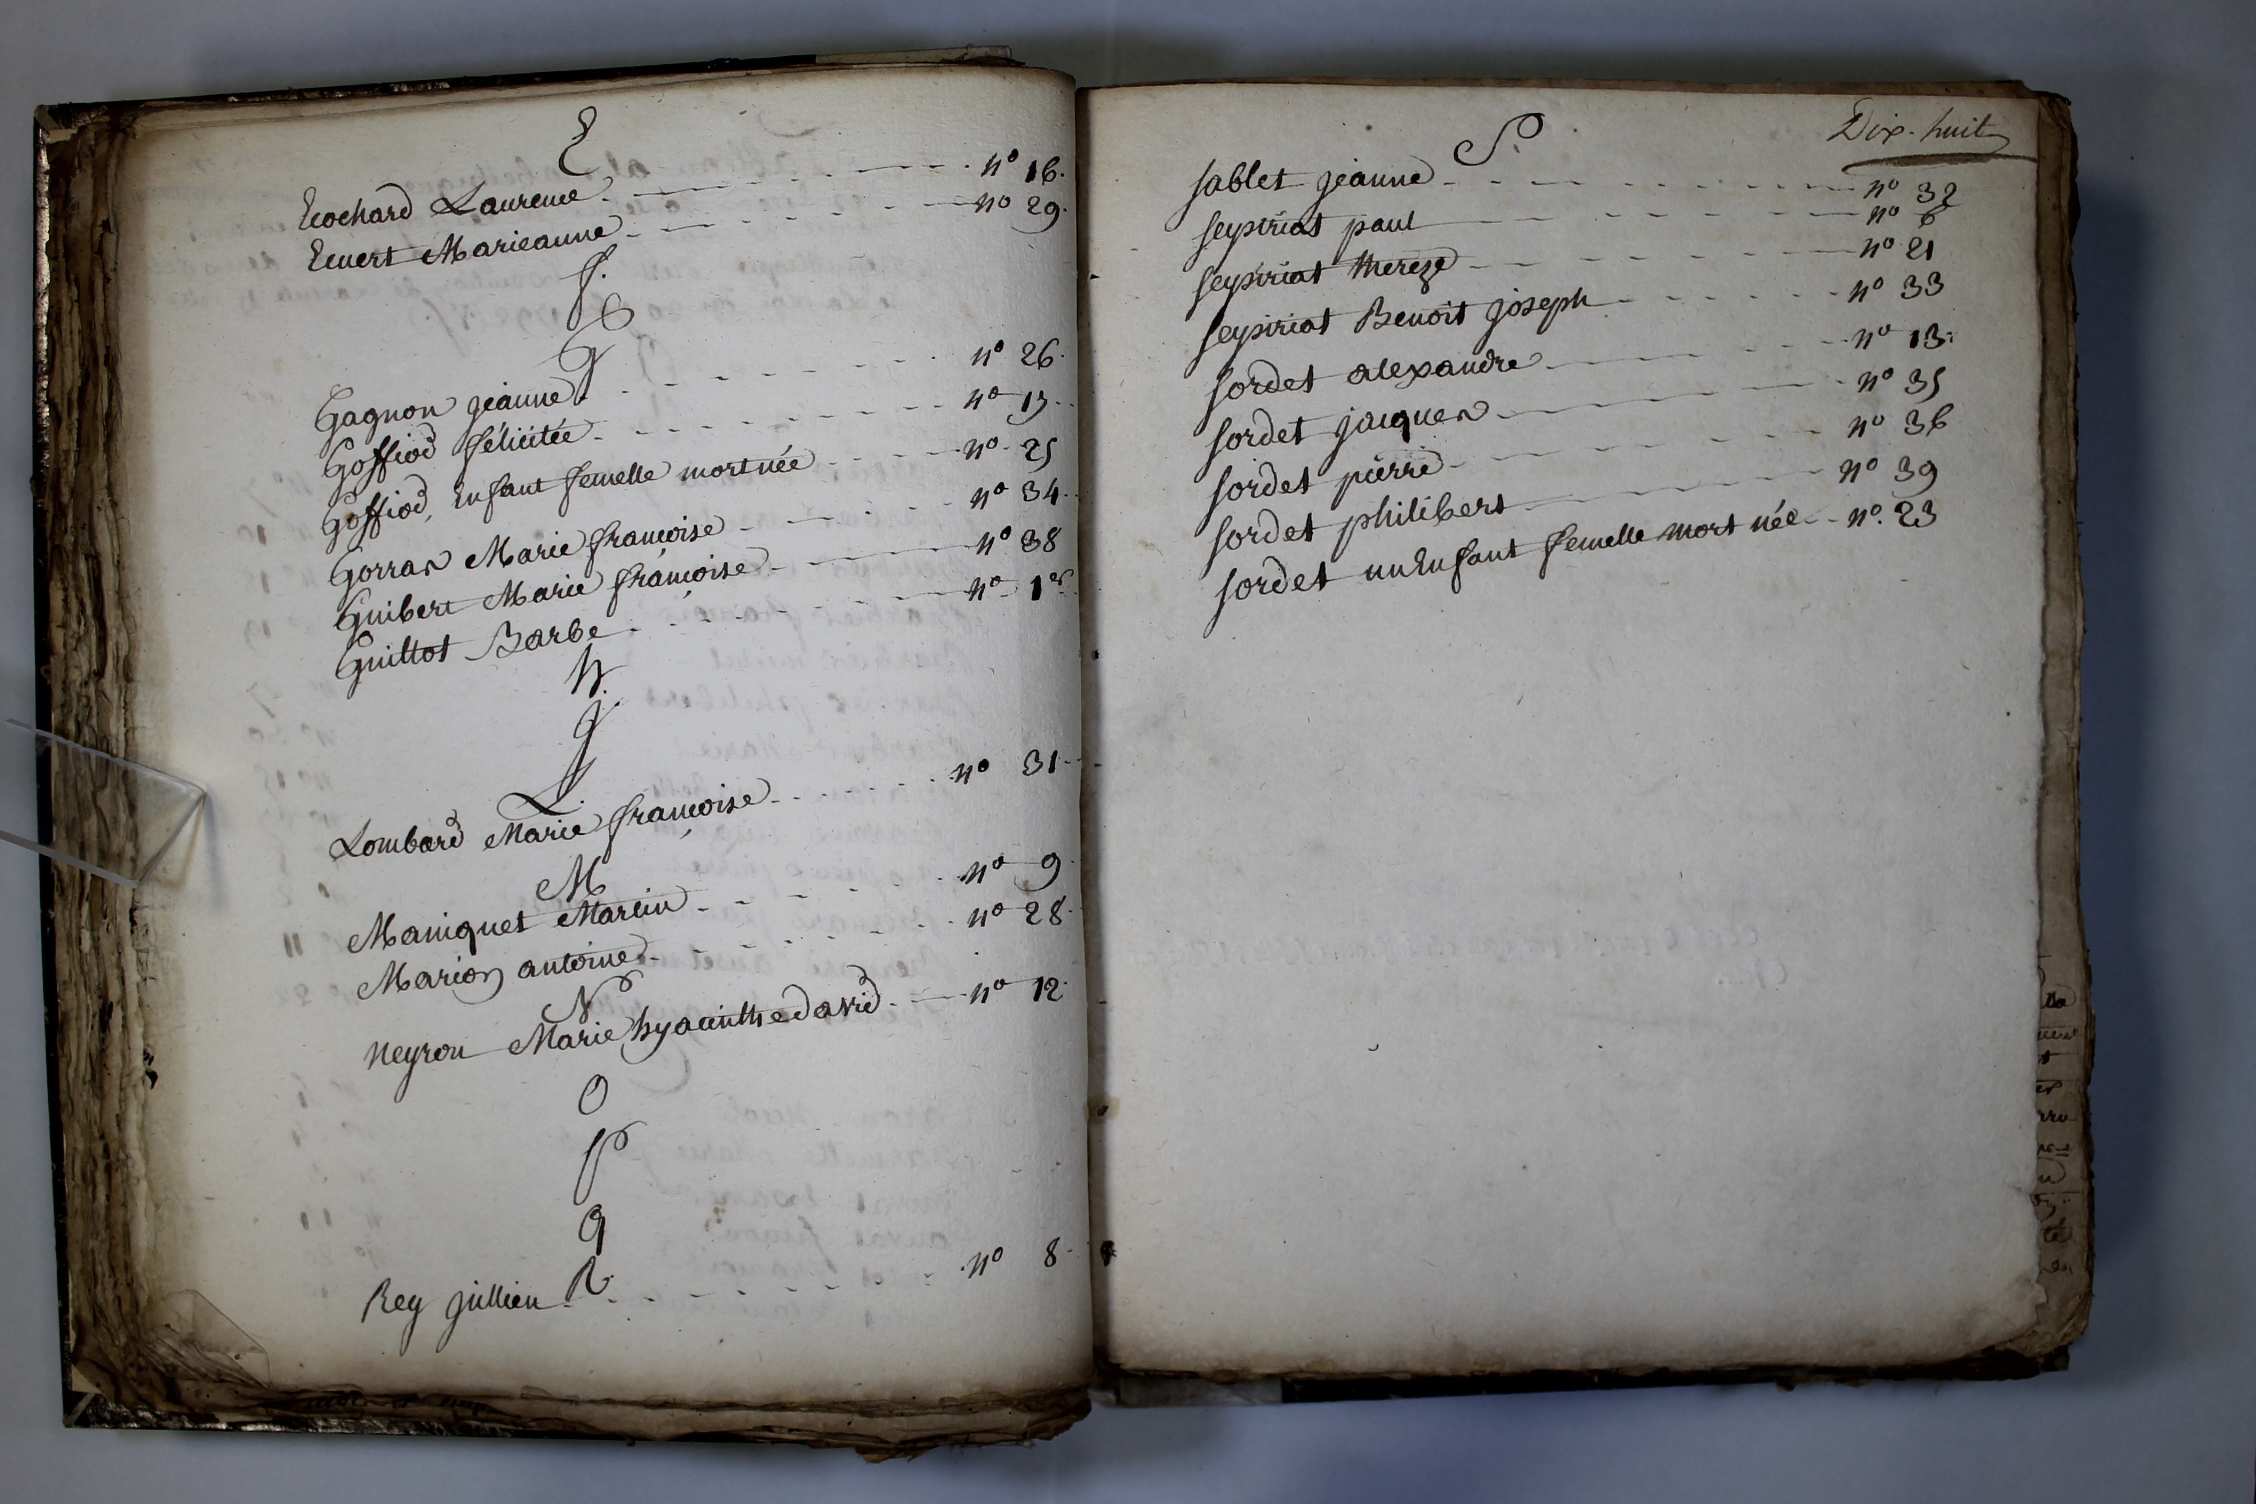 E
Ecochard Laurence nº 16.
Ecuert Marieanne nº 29.
f.
G
Gagnon jeanne nº 26.
Goffiod félicitée nº 15.
Goffiod, Enfant femelle mort née nº 25
Gorras Marie françoise nº 34.
Guibert Marie françoise nº 38
Guillot Barbe nº 1er
h.
j.
L.
Lombard Marie françoise nº 31.
M
Maniquet Martin nº 9.
Marion antoine nº 28.
N
Neyron Marie hyacinthe david nº 12.
O
P
q
R.
Rey jullien nº 8.
Dix-huit
S.
Sablet jeanne nº 32
Seysiriat paul nº 6
Seysiriat thereze nº 21
Seysiriat Benoit joseph nº 33
Sordet alexandre nº 13.
Sordet jacques nº 35
Sordet pierre nº 36
Sordet philibert nº 39
Sordet un Enfant femelle mort née nº. 23